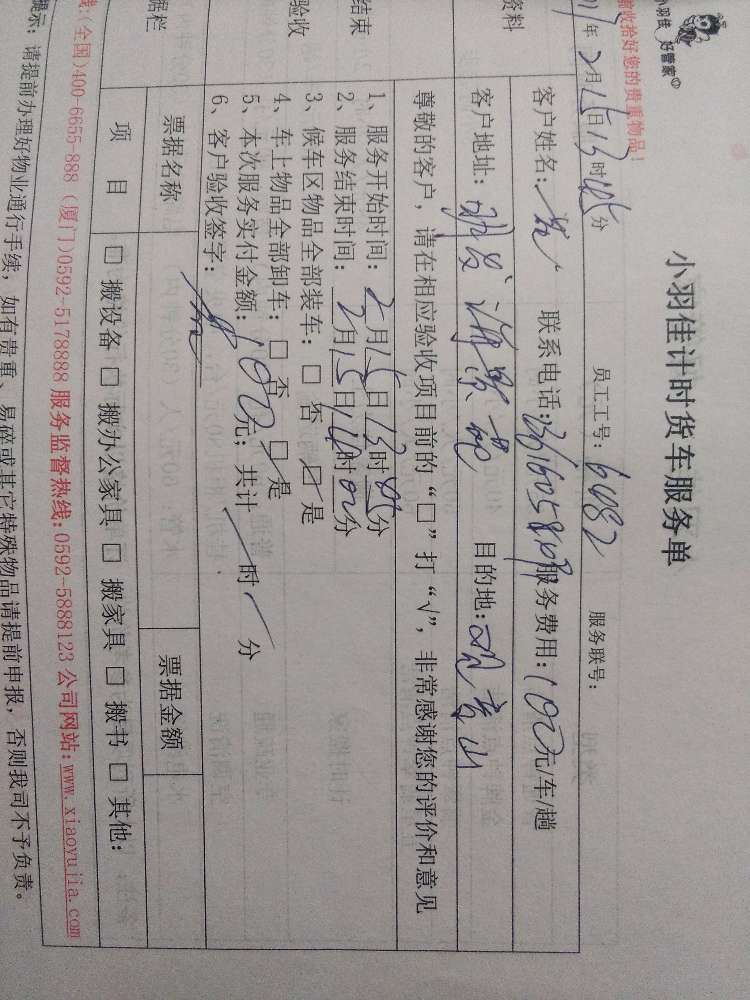 小羽佳 好管家
收拾好您的贵重物品！
小羽佳计时货车服务单
年2月15日13时45分 员工工号：6482 服务联号：
资料
客户姓名： 联系电话： 服务费用：100元/车/趟
客户地址： 海景苑 目的地：观音山
尊敬的客户，请在相应验收项目前的“□”打“√”，非常感谢您的评价和意见
结束
验收
1、服务开始时间：2月15日13时45分
2、服务结束时间：2月15日14时00分
3、候车区物品全部装车：□ 否 ☑ 是
4、车上物品全部卸车：□ 否 ☑ 是
5、本次服务实付金额：100元；共计 时 分
6、客户验收签字：
据栏
票据名称 票据金额
项 目 □ 搬设备 □ 搬办公家具 □ 搬家具 □ 搬书 □ 其他：
线：(全国)400-6655-888 (厦门)0592-5178888 服务监督热线：0592-5888123 公司网站：www.xiaoyujia.com
提示：请提前办理好物业通行手续，如有贵重、易碎或其它特殊物品请提前申报，否则我司不予负责。